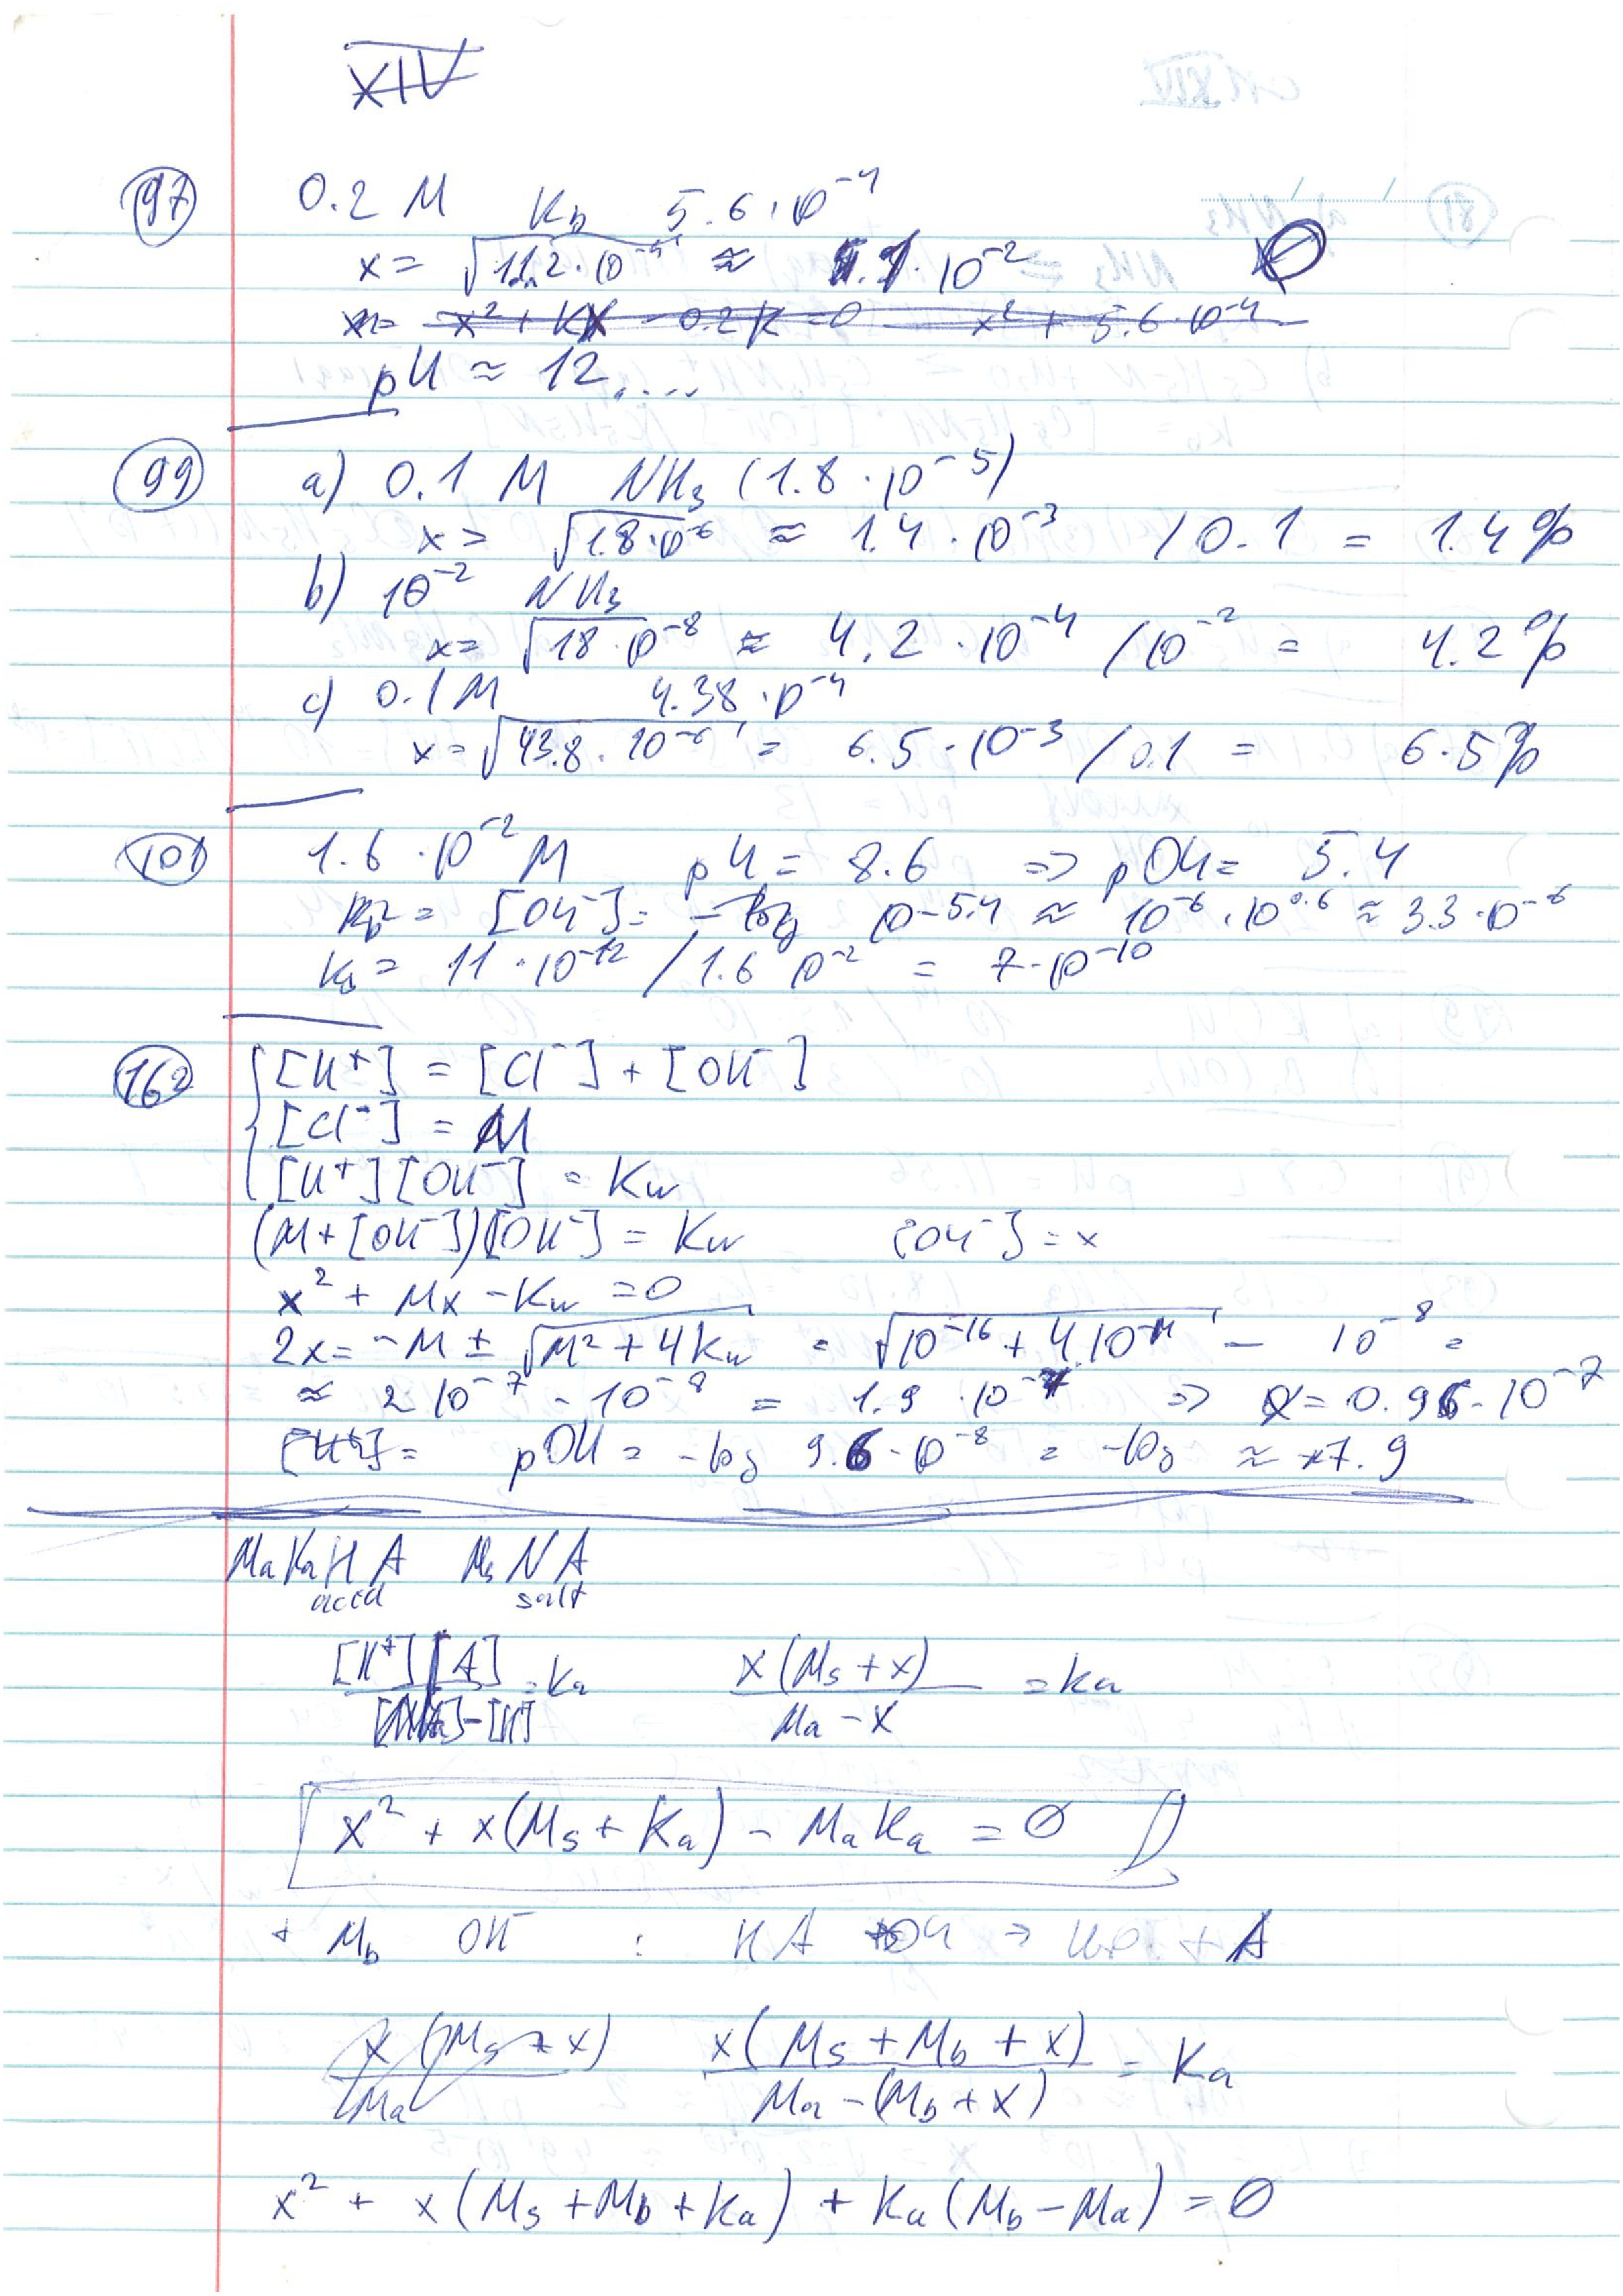 XIV
97 0.2 M Kb 5.6·10⁻⁴
x = √11.2·10⁻⁵ ≈ ·10⁻²
x² + Kx - 0.2K = 0 x² + 5.6·10⁻⁴
pH ≈ 12....
99 a) 0.1 M NH₃ (1.8·10⁻⁵)
x = √1.8·10⁻⁶ ≈ 1.4·10⁻³ / 0.1 = 1.4%
b) 10⁻² NH₃
x = √18·10⁻⁸ ≈ 4.2·10⁻⁴ / 10⁻² = 4.2%
c) 0.1 M 4.38·10⁻⁴
x = √43.8·10⁻⁶ = 6.5·10⁻³ / 0.1 = 6.5%
101 1.6·10⁻² M pH = 8.6 => pOH = 5.4
= [OH⁻] = -log 10⁻⁵·⁴ ≈ 10⁻⁶·10⁰·⁶ ≈ 3.3·10⁻⁶
Kb = 11·10⁻¹² / 1.6 10⁻² = 7·10⁻¹⁰
162 [H⁺] = [Cl⁻] + [OH⁻]
[Cl⁻] = M
[H⁺][OH⁻] = Kw
(M + [OH⁻])[OH⁻] = Kw [OH⁻] = x
x² + Mx - Kw = 0
2x = -M ± √M² + 4Kw = √10⁻¹⁶ + 4·10⁻¹⁴ - 10⁻⁸ =
≈ 2 10⁻⁷ - 10⁻⁸ = 1.9·10⁻⁷ => x = 0.96·10⁻⁷
[H⁺] = pOH = -log 9.6·10⁻⁸ = -log ≈ 7.9
Ma Ka HA Ms NA
acid salt
[H⁺][A] = Ka x(Ms + x) / Ma - x = Ka
x² + x(Ms + Ka) - MaKa = 0
+ Mb OH⁻ : HA + OH → + A
x (Ms + x) / Ma x(Ms + Mb + x) / Ma - (Mb + x) = Ka
x² + x(Ms + Mb + Ka) + Ka(Mb - Ma) = 0